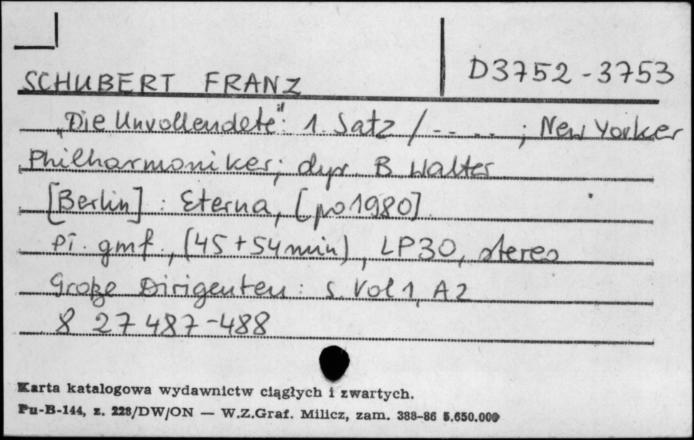 D3752-3753
SCHUBERT FRANZ
„Die Unvollendete": 1. Satz / -- -- ; New Yorker
Philharmoniker; dyr. B. Walter
[Berlin] : Eterna, [po 1980]
pł. gmf. (45+54 min), LP30, stereo
Große Dirigenten: s. Vol 1, A2
8 27 487-488
Karta katalogowa wydawnictw ciągłych i zwartych.
Pu-B-144, z. 228/DW/ON — W.Z.Graf. Milicz, zam. 388-86 5.650.000